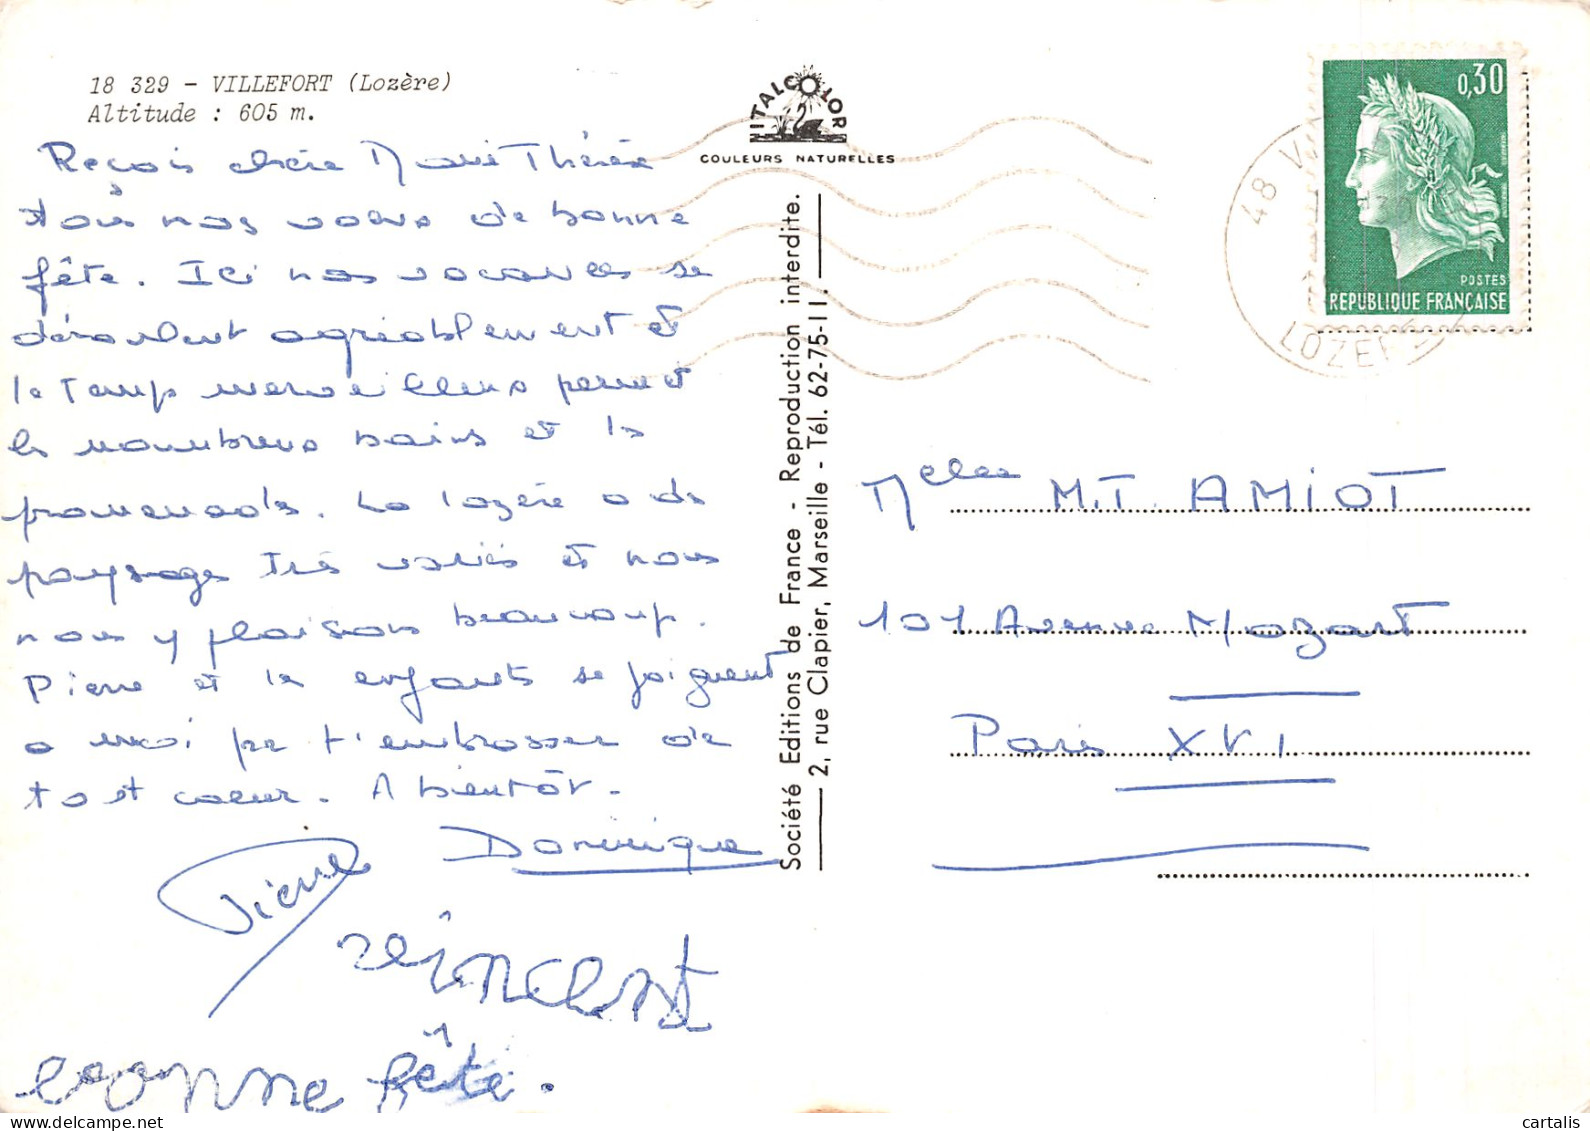 18 329 - VILLEFORT (Lozère)
Altitude : 605 m.
Reçois chère Marie Thérèse
tous nos voeux de bonne
fête. Ici nos vacances se
déroulent agréablement et
le temps merveilleux permet
les nombreux bains et les
promenades. La Lozère a des
paysages très variés et nous
nous y plaisons beaucoup.
Pierre et les enfants se joignent
a moi pr t'embrasser de
tout coeur. A bientôt.
Dominique
Pierre
Vincent
bonne fête.
ITALCOLOR
COULEURS NATURELLES
Société Editions de France - Reproduction interdite.
2, rue Clapier, Marseille - Tél. 62-75-11.
0,30
POSTES
REPUBLIQUE FRANÇAISE
48 V
LOZERE
Melle M.T. AMIOT
101 Avenue Mozart
Paris XVI
cartalis
delcampe.net